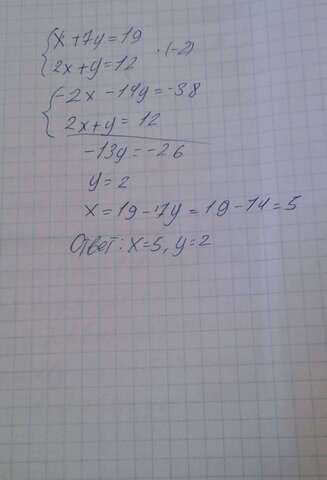 x+7y=19 ·(-2)
2x+y=12
-2x-14y=-38
2x+y=12
-13y=-26
y=2
x=19-7y=19-14=5
Ответ: x=5, y=2